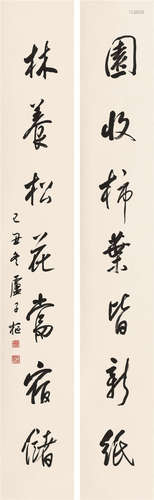 園收柿葉皆新紙
林養松花當宿儲
己丑冬盧子樞